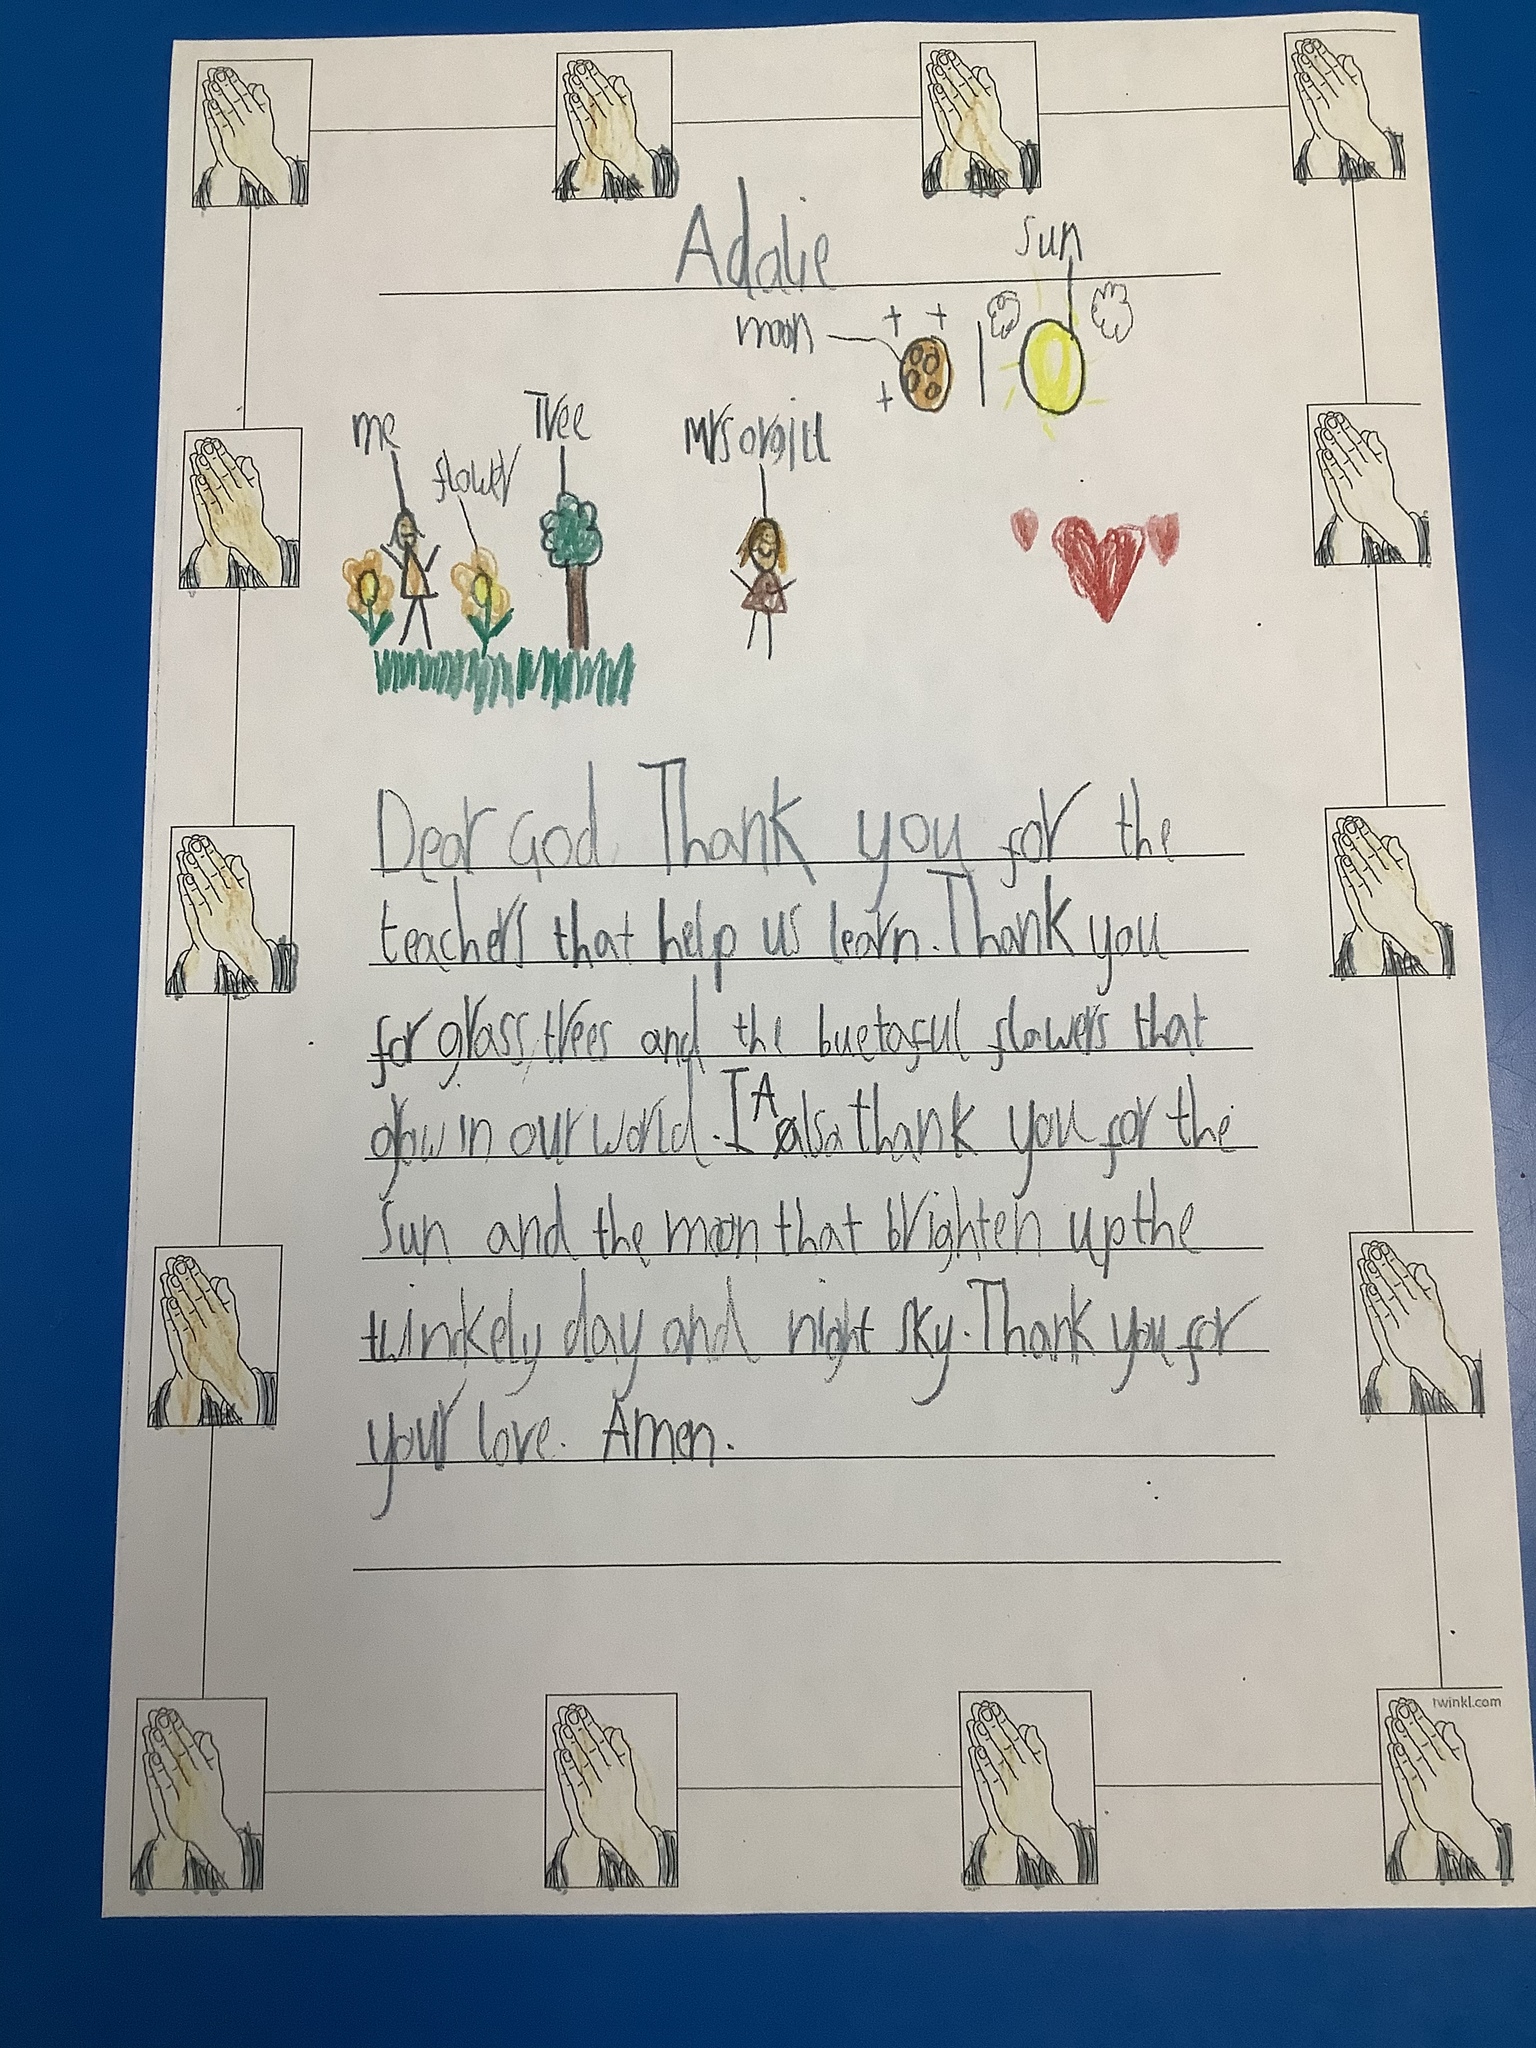 Adalie
sun
moon
me
Tree
flower
Mrs orgill
Dear God, Thank you for the
teachers that help us learn. Thank you
for grass, trees and the buetaful flowers that
grow in our world. I A also thank you for the
sun and the moon that brighten up the
twinkely day and night sky. Thank you for
your love. Amen.
twinkl.com